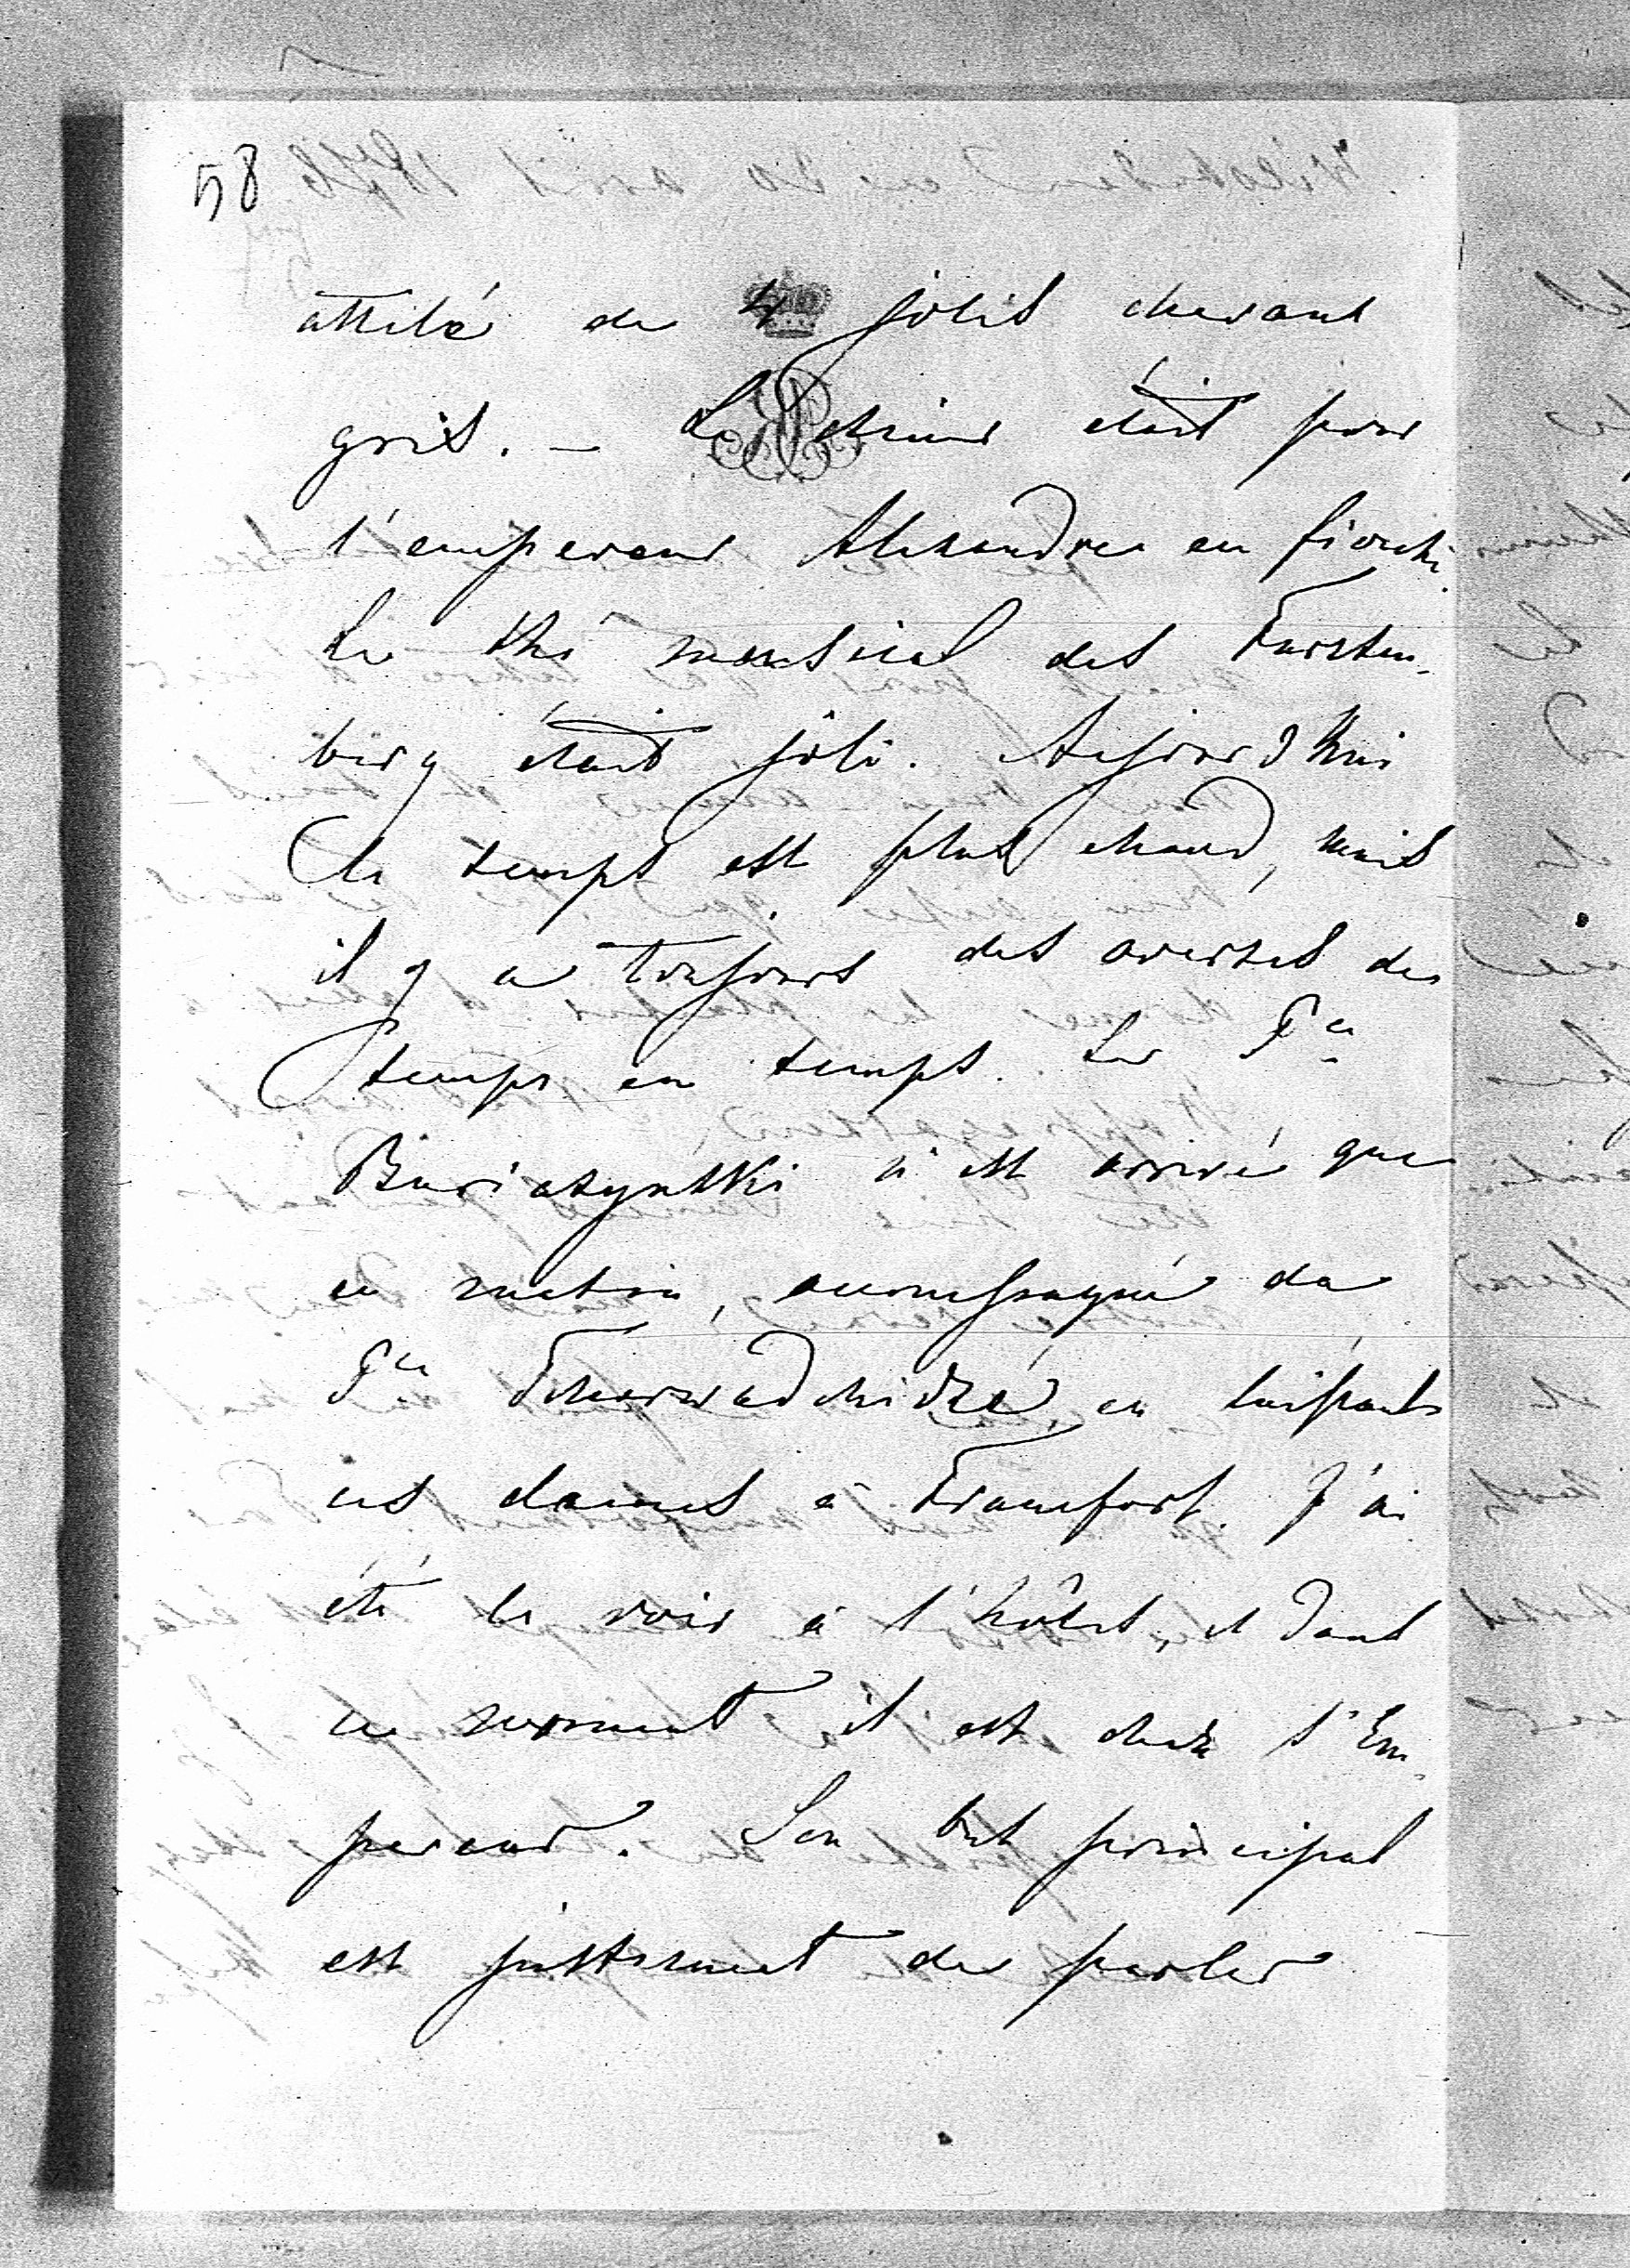 58
attelé de 4 jolis chevaux
gris. — Le dîner était pour
l'empereur Alexandre en fiocchi.
Le thé musical des Fursten-
berg était joli. Aujourd'hui
le temps est plus chaud, mais
il y a toujours des averses de
temps en temps. Le Pce
Bariatynski n'est arrivé que
ce matin, accompagné du
Pce Scherwachidzé, en laissant
ces dames à Francfort. J'ai
été le voir à l'hôtel, et dans
ce moment il est chez l'Em-
pereur. Son but principal
est justement de parler